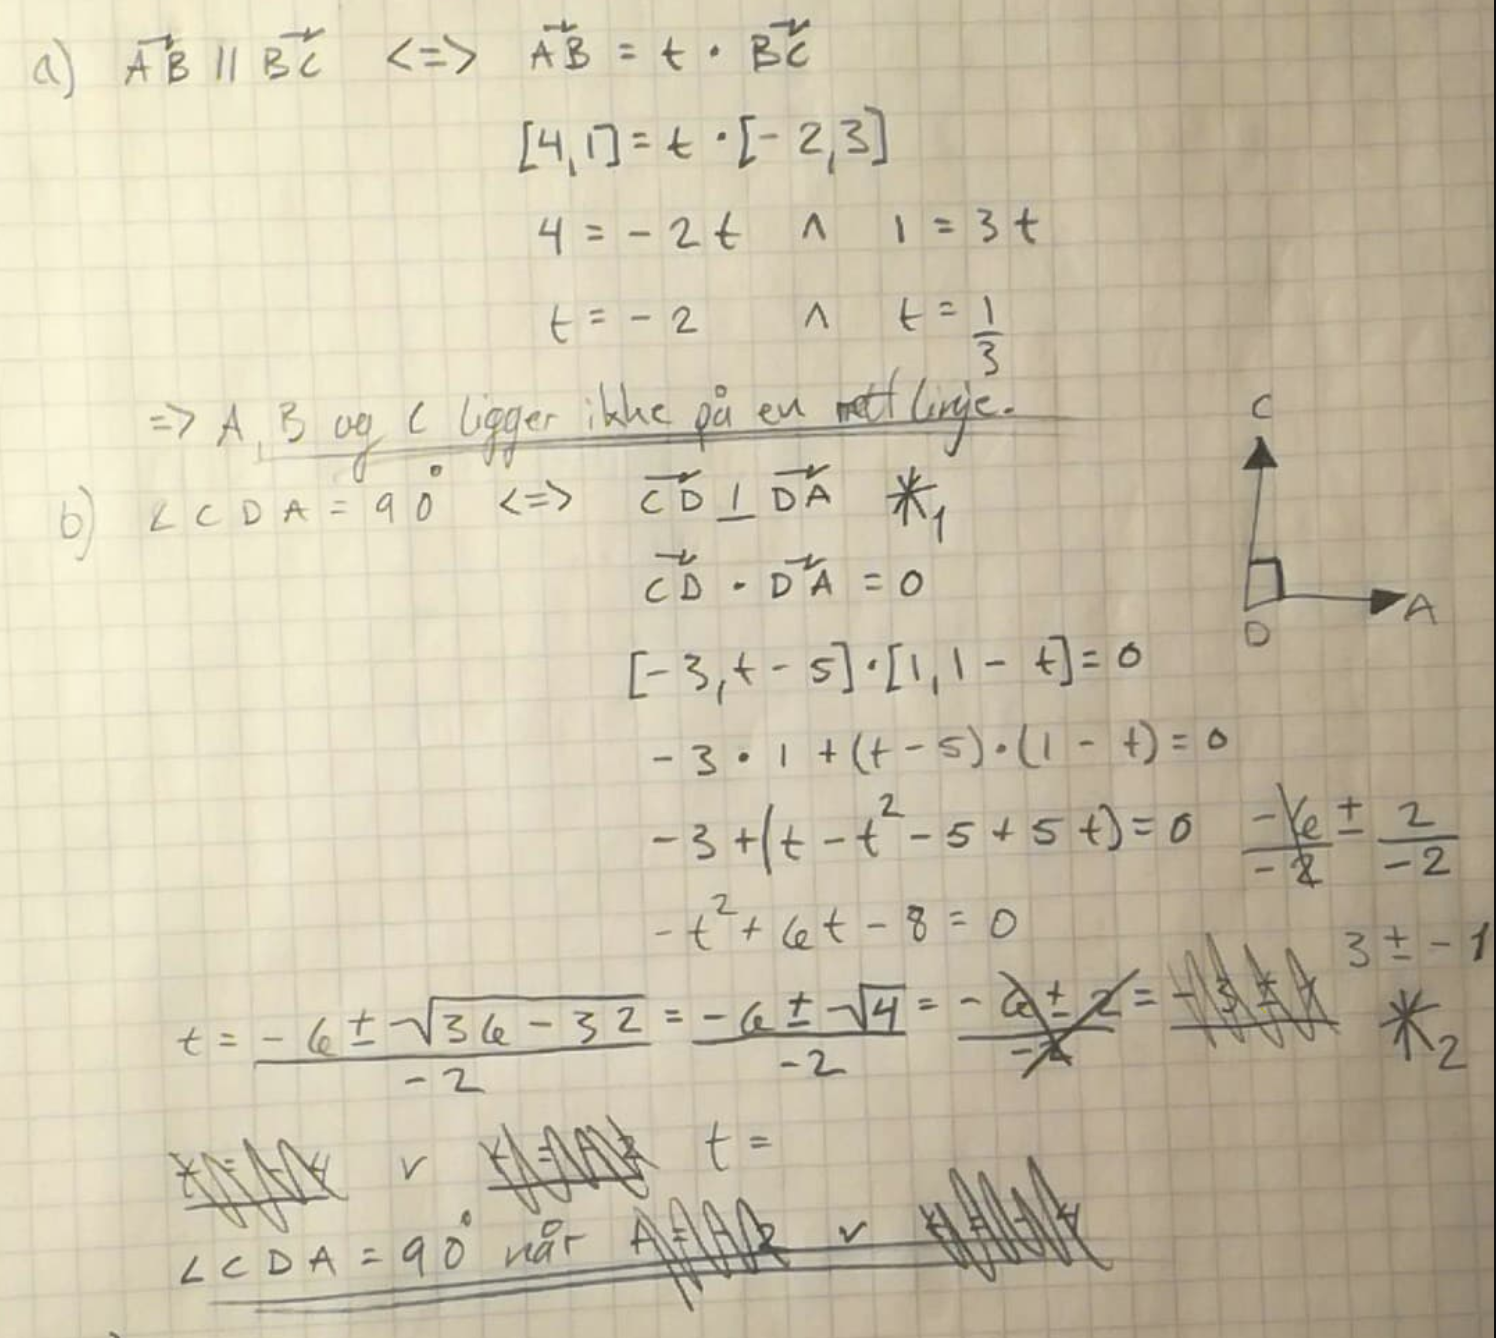 a) AB⃗ || BC⃗ <=> AB⃗ = t · BC⃗
[4,1] = t · [-2,3]
4 = -2t ∧ 1 = 3t
t = -2 ∧ t = 1/3
=> A, B og C ligger ikke på en rett linje.
b) ∠CDA = 90° <=> CD⃗ ⊥ DA⃗ *1
CD⃗ · DA⃗ = 0
C
D
A
[-3, t-5] · [1, 1-t] = 0
-3 · 1 + (t-5) · (1-t) = 0
-3 + (t - t² - 5 + 5t) = 0
-6/-2 ± 2/-2
-t² + 6t - 8 = 0
3 ± -1
t = (-6 ± √(36-32))/-2 = (-6 ± √4)/-2 = (-6 ± 2)/-2 =
*2
v t =
∠CDA = 90° når v